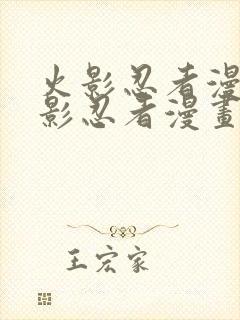 火影忍者漫
影忍者漫畫
王宏家